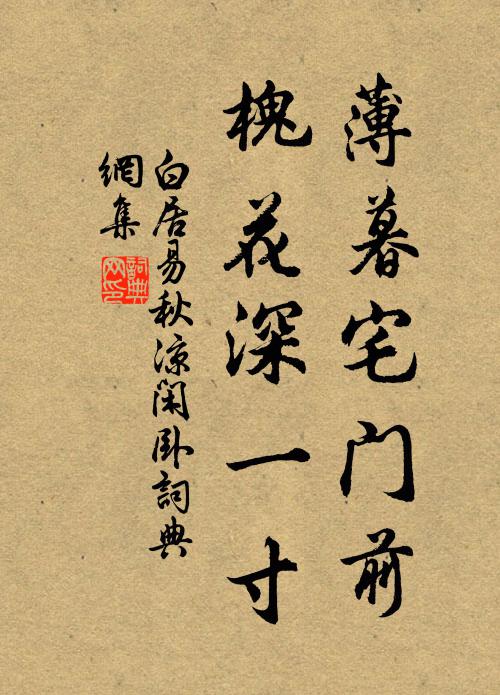 薄暮宅门前
槐花深一寸
白居易秋凉闲卧詞典
網集
詞典
网印